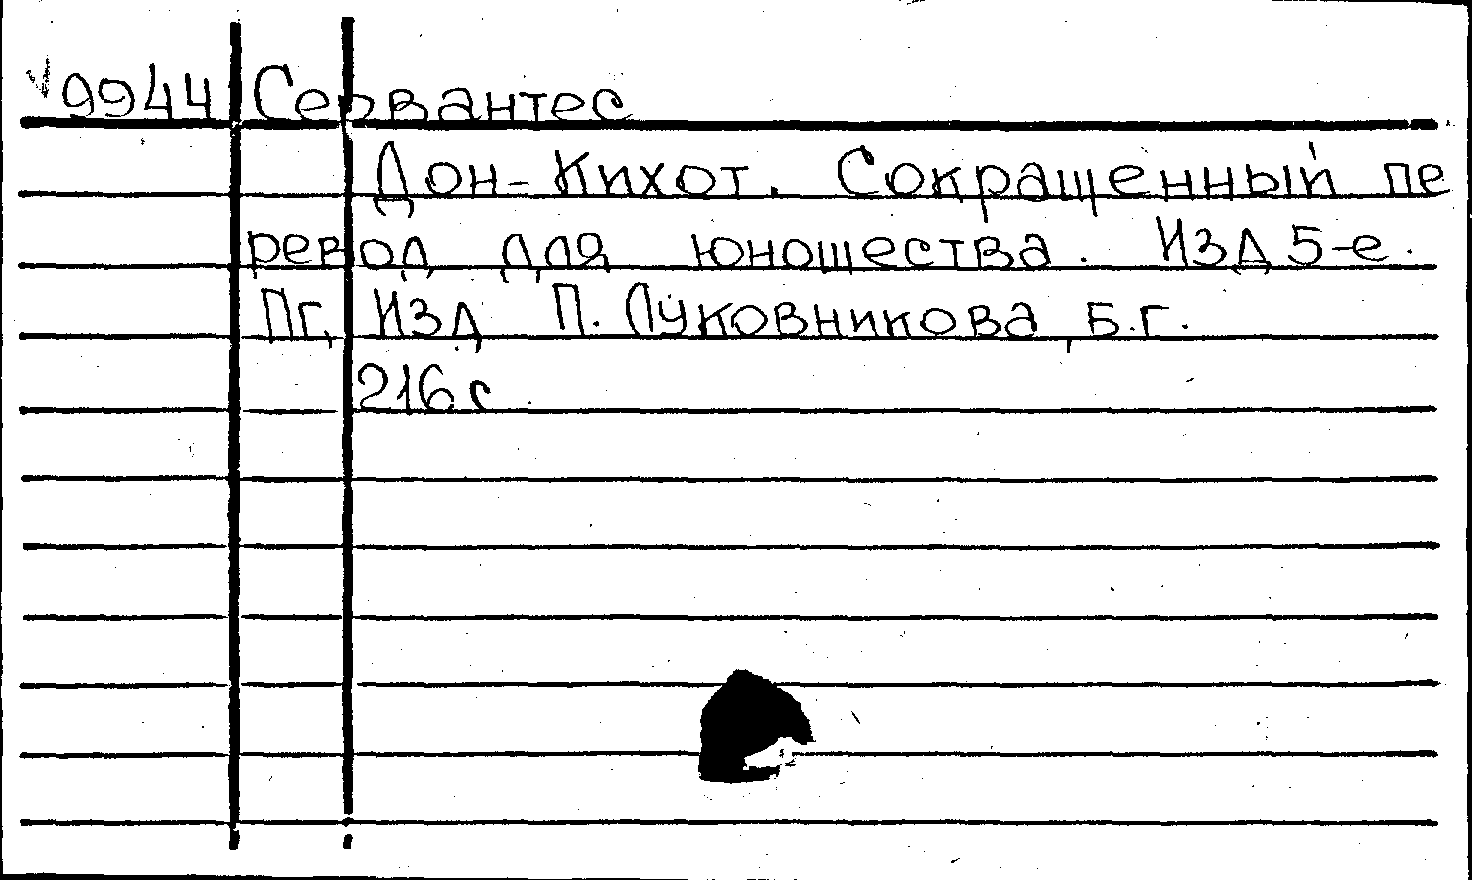 9944 Сервантес
Дон-Кихот. Сокращенный пе
ревод для юношества. Изд 5-е.
Пг, Изд П. Луковникова, Б.г.
216 с